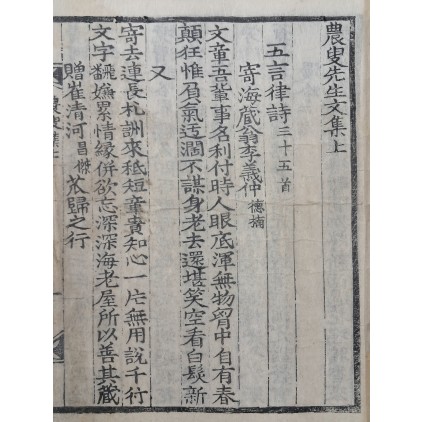 農叟先生文集上
五言律詩三十五首
寄海藏翁李義仲德摛
文章吾輩事名利付時人眼底渾無物胷中自有春
顛狂惟負氣迃濶不謀身老去還堪笑空看白髮新
又
寄去連長札詶來秪短章貴知心一片無用說千行
文字飜嫌累情緣併欲忘深深海老屋所以善其藏
贈崔清河昌傑 歸之行